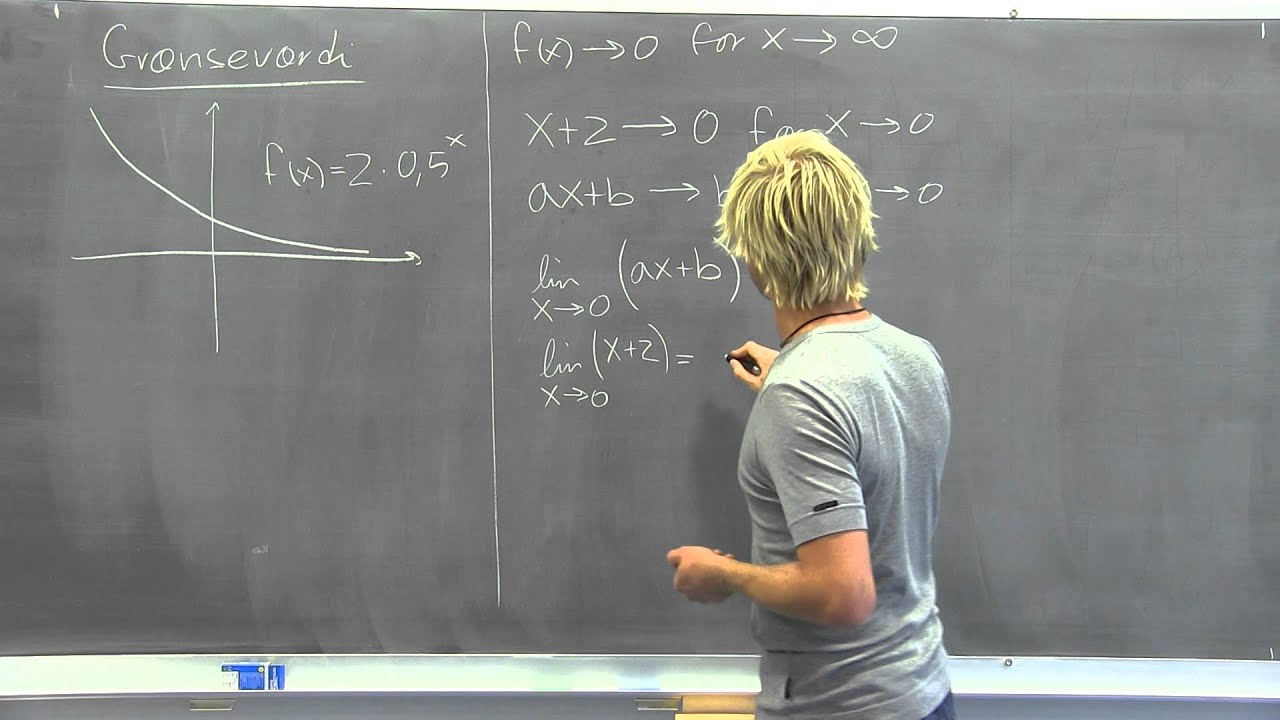 Grænseværdi
f(x) = 2 · 0,5^x
f(x) → 0 for x → ∞
x+2 → 0 for x → 0
ax+b → b → 0
lim (ax+b)
x → 0
lim (x+2) =
x → 0